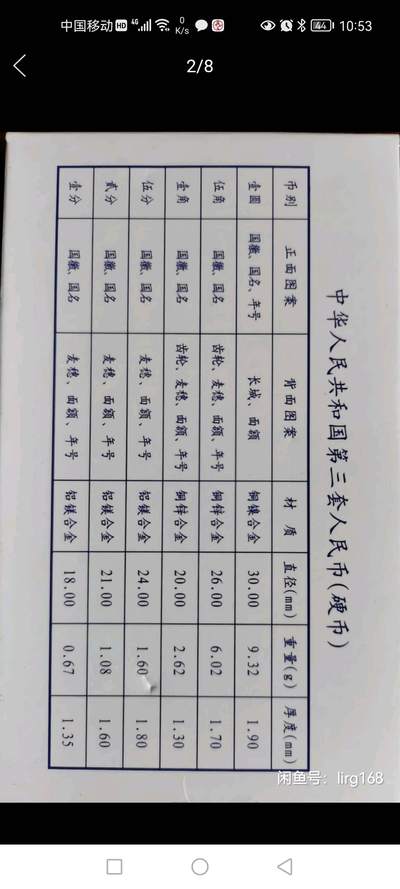 中国移动 HD 4G 0 K/s 44 10:53
2/8
中华人民共和国第三套人民币(硬币)
币别 正面图案 背面图案 材质 直径(mm) 重量(g) 厚度(mm)
壹圆 国徽、国名、年号 长城、面额 铜镍合金 30.00 9.32 1.90
伍角 国徽、国名 齿轮、麦穗、面额、年号 铜锌合金 26.00 6.02 1.70
壹角 国徽、国名 齿轮、麦穗、面额、年号 铜锌合金 20.00 2.62 1.30
伍分 国徽、国名 麦穗、面额、年号 铝镁合金 24.00 1.60 1.80
贰分 国徽、国名 麦穗、面额、年号 铝镁合金 21.00 1.08 1.60
壹分 国徽、国名 麦穗、面额、年号 铝镁合金 18.00 0.67 1.35
闲鱼号：lirg168